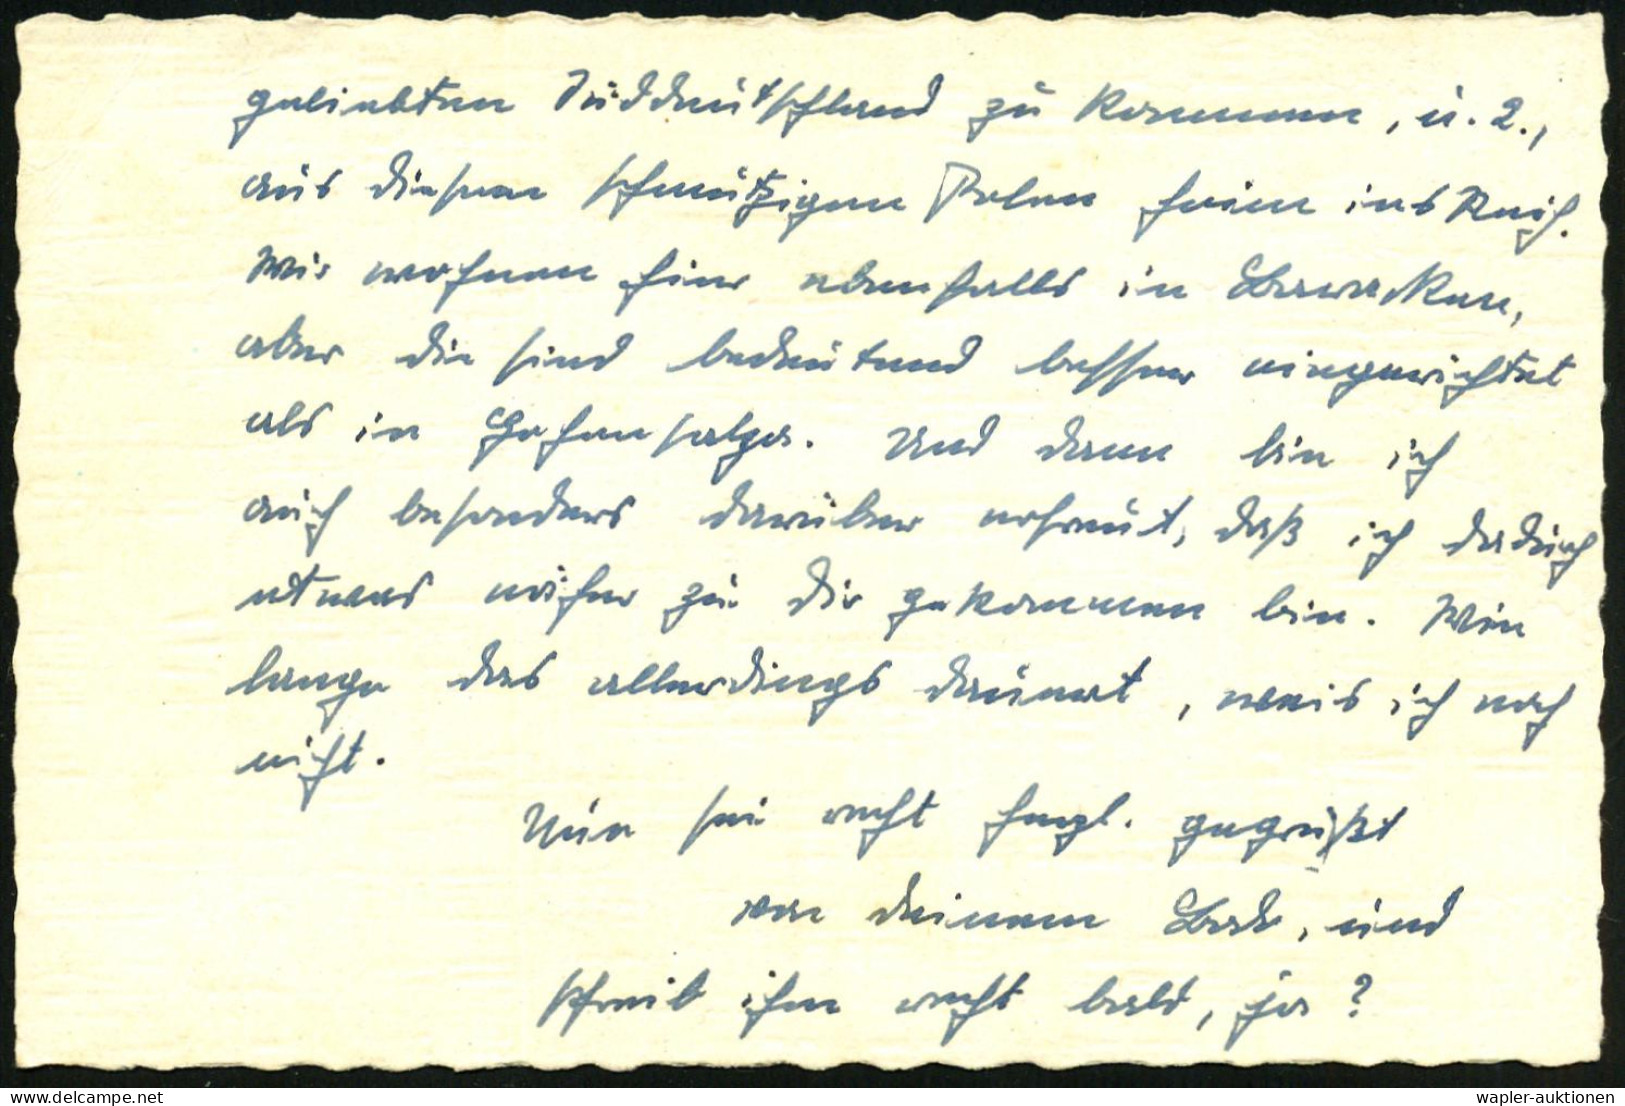 geliebten Süddeutschland zu kommen, u. 2.,
aus diesem schmutzigen Polen heim ins Reich.
Wir wohnen hier ebenfalls in Baracken,
aber die sind bedeutend besser eingerichtet
als in Hohensalza. Und dann bin ich
auch besonders darüber erfreut, daß ich dadurch
etwas näher zu Dir gekommen bin. Wie
lange das allerdings dauert, weis ich noch
nicht.
Nun sei recht herzl. gegrüßt
von deinem, und
schreib ihm recht bald, ja?
hippostcard.com
wapler-auktionen